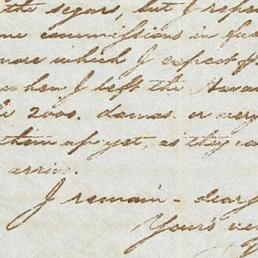 the segars, but I
commissions in
now which I expect
when I left the Hava
2000. damas. or very
them up yet, as they
arrive.
I remain - dear
Yours